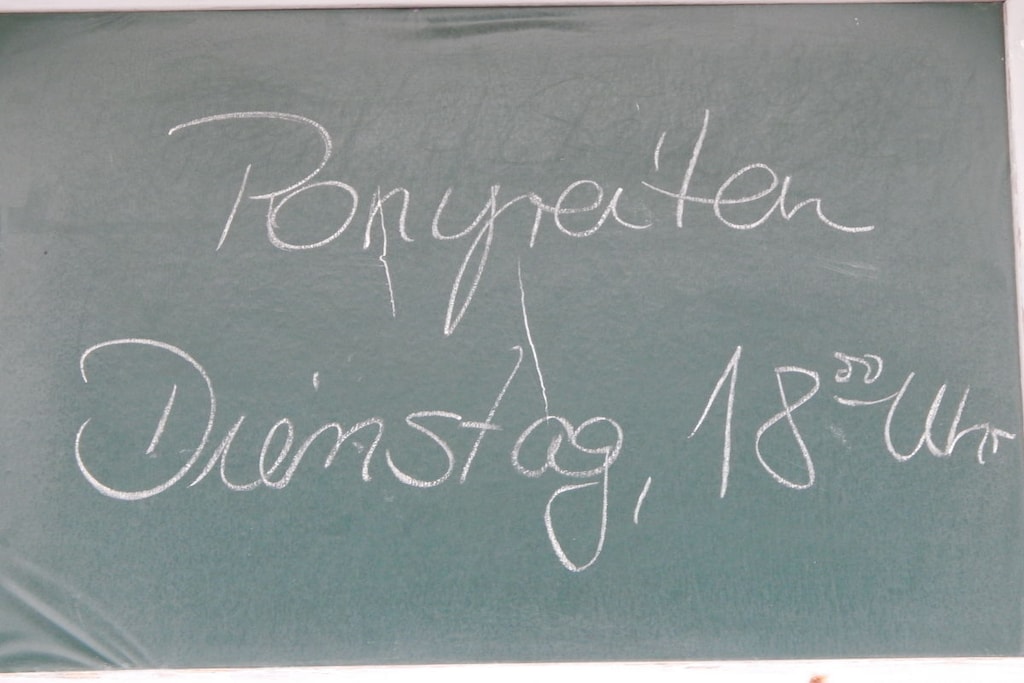 Ponyreiten
Dienstag, 18⁰⁰ Uhr